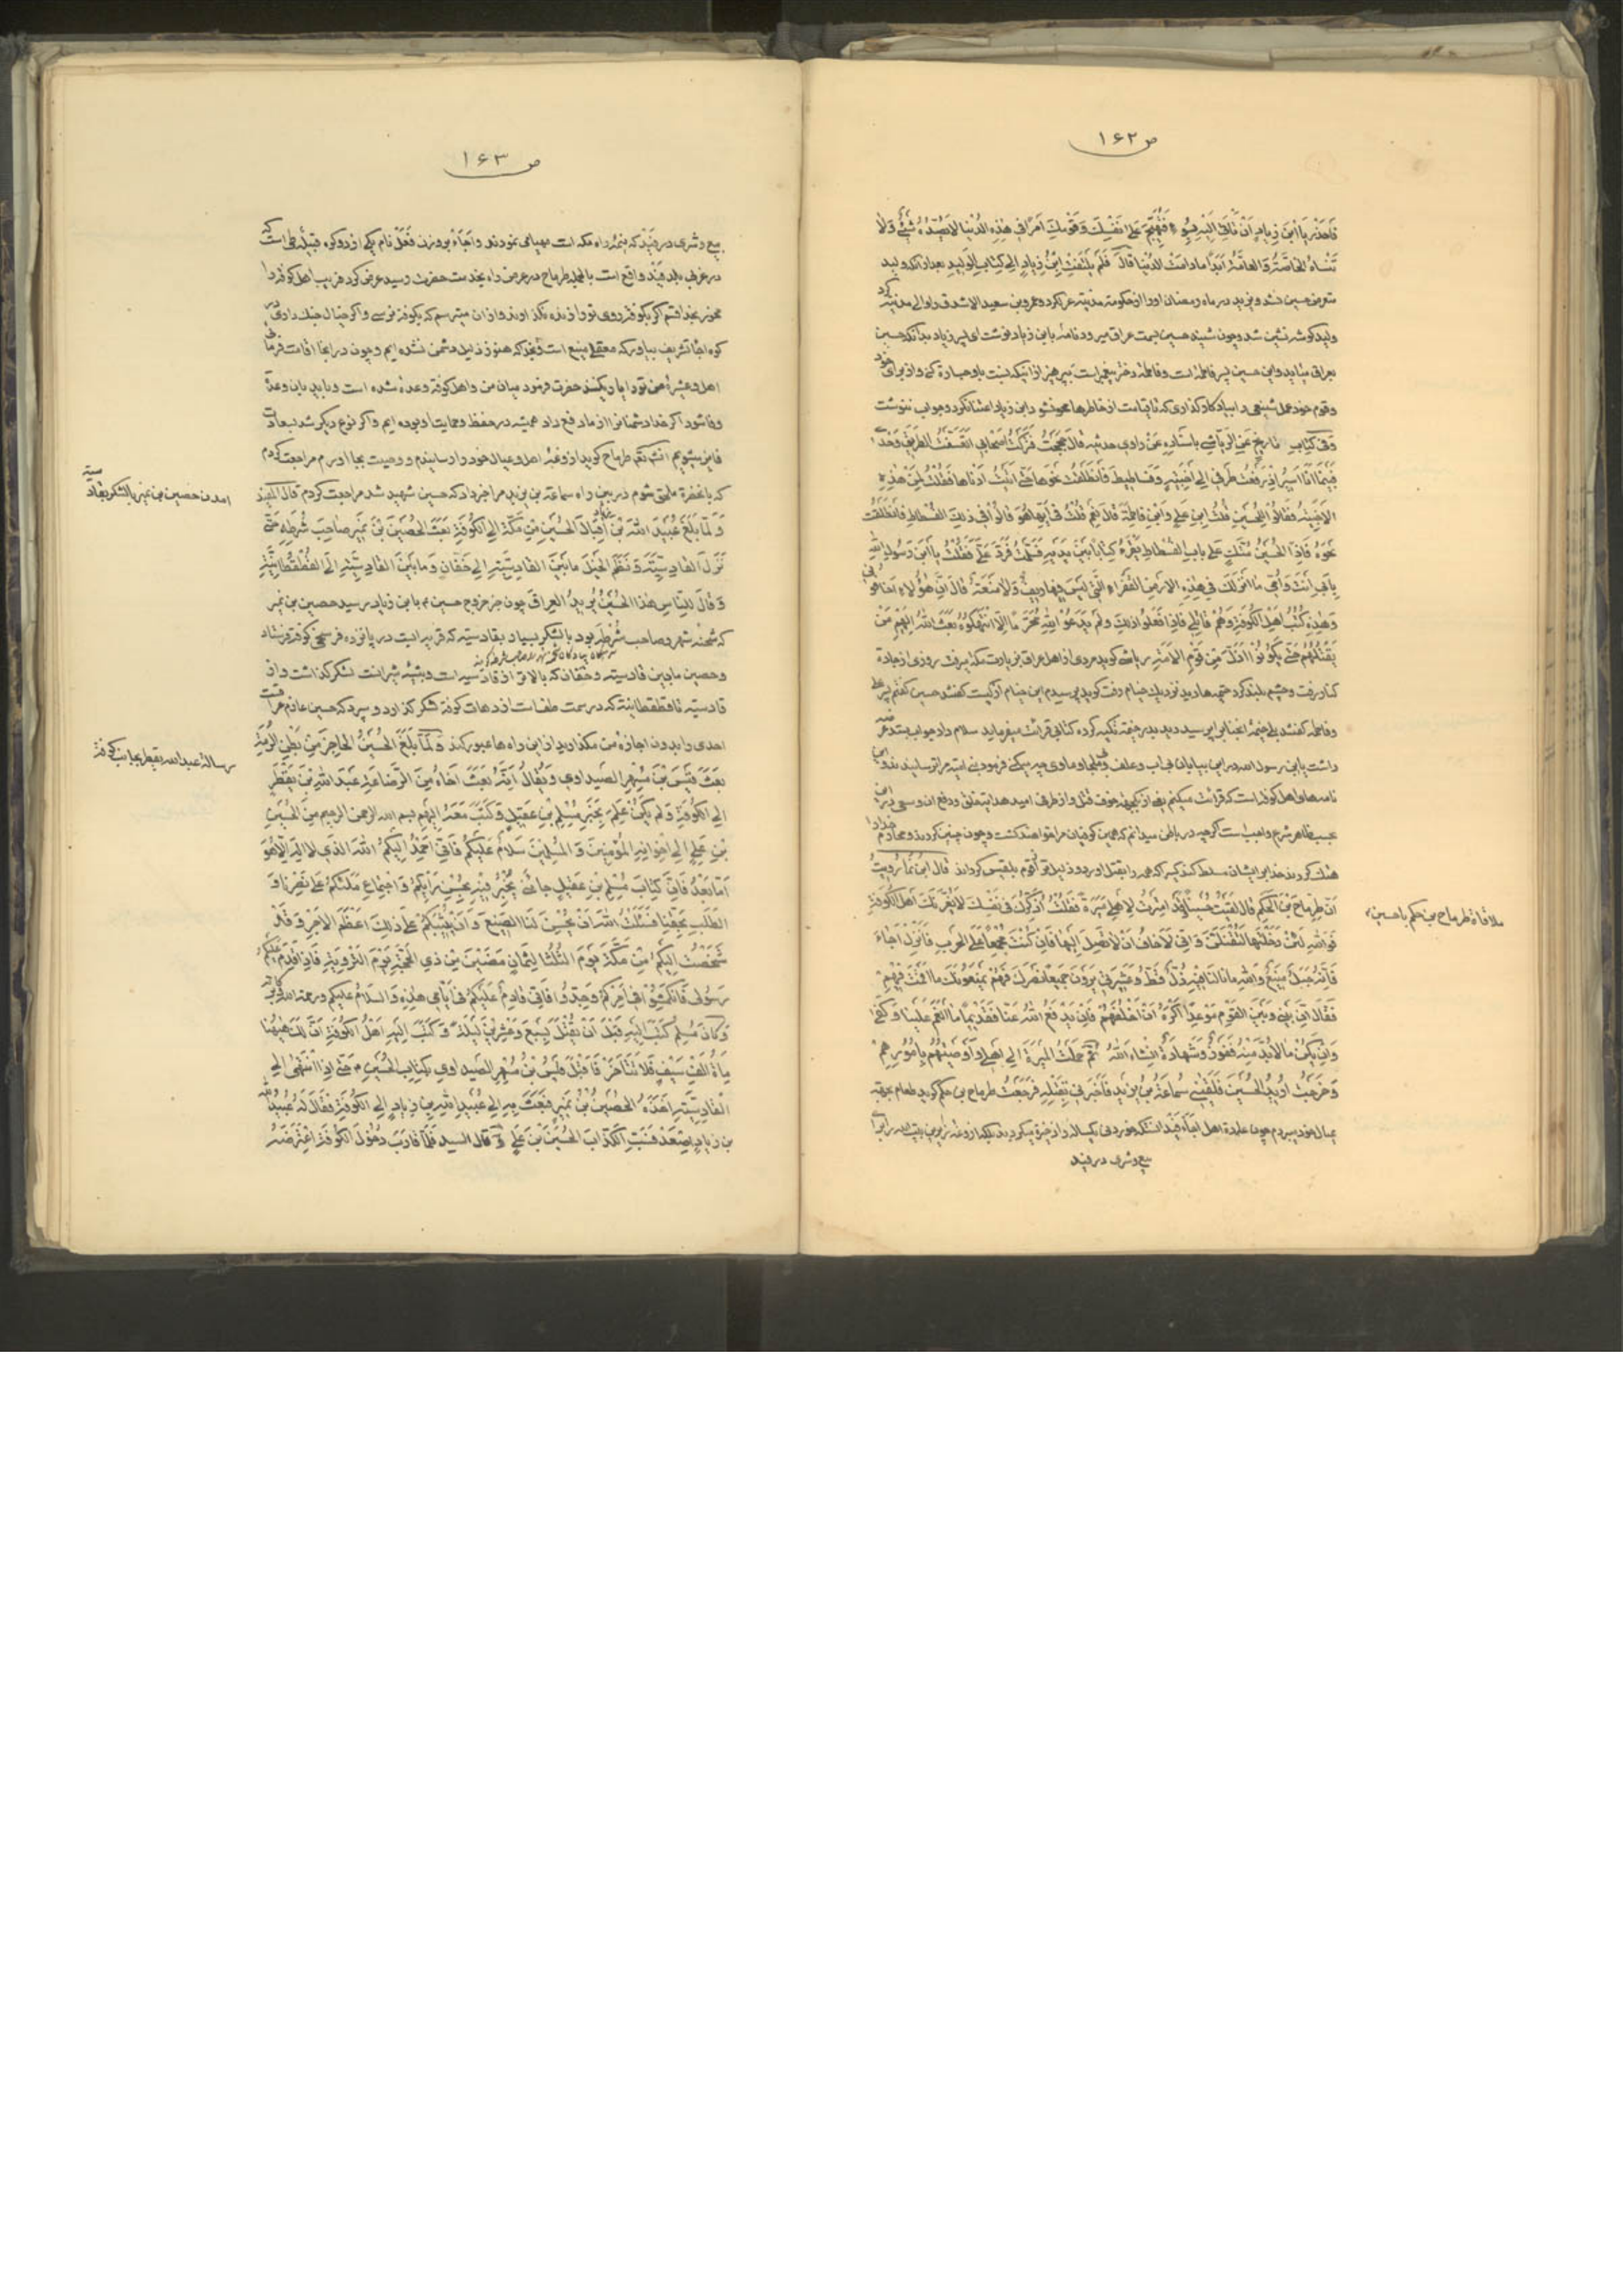 ص ۱۶۲
فَاحْذَرْ يَا ابْنَ زِيادٍ اَنْ تَأْتِيَ اِلَيْهِ بِسُوءٍ فَتُهَيِّجَ عَلى نَفْسِكَ وَقَوْمِكَ اَمْرًا في هٰذِهِ الدُّنْيا لا يَصُدُّهُ شَيْءٌ وَلا
تَنْساهُ الخاصَّةُ وَالعامَّةُ اَبَدًا مادامَتِ الدُّنْيا قالَ فَلَمْ يَلْتَفِتِ ابْنُ زِيادٍ اِلى كِتابِ الوَليدِ بعد از آنکه ولید
متعرض حسین نشد و یزید در ماه رمضان او را از حکومت مدینه عزل کرد و عمرو بن سعید الاشدق را والی مدینه کرد
ولید گوشه نشین شد و چون شنید حسین بسمت عراق میرود نامه بابن زیاد نوشت ای پسر زیاد بدانکه حسین
بعراق میاید و این حسین پسر فاطمه است و فاطمه دختر پیغمبر است بپرهیز از اینکه نسبت باو جسارة کنی و از برای خود
وقوم خود عمل شنیعی را بیادگار گذاری که تا قیامت از خاطرها محو نشود ابن زیاد اعتنا نکرد و جواب ننوشت
وَفي كِتابِ تاريخٍ عَنِ الرِّياشي باسنادِهِ عَنْ راوي حديثِهِ قالَ حَجَجْتُ فَتَرَكْتُ اَصْحابي اَتَعَسَّفُ الطَّريقَ وَحْدي
فَبَيْنَما اَنَا اَسيرُ اِذْ رَفَعْتُ طَرْفي اِلى اَخْبِيَةٍ وَفَساطيطَ فَانْطَلَقْتُ نَحْوَها حَتّى اَتَيْتُ اَدْناها فَقُلْتُ لِمَنْ هٰذِهِ
الاَبْنِيَةُ فَقالُوا لِلْحُسَيْنِ قُلْتُ ابْنِ عَلِيٍّ وَابْنِ فاطِمَةَ قالَ نَعَمْ قُلْتُ في اَيِّها هُوَ قالُوا في ذلِكَ الفُسْطاطِ فَانْطَلَقْتُ
نَحْوَهُ فَاِذَا الحُسَيْنُ مُتَّكٍ عَلى بابِ الفُسْطاطِ يَقْرَءُ كِتابًا بَيْنَ يَدَيْهِ فَسَلَّمْتُ فَرَدَّ عَلَيَّ فَقُلْتُ يَا ابْنَ رَسُولِ اللهِ
بِاَبي اَنْتَ وَاُمّي ما اَنْزَلَكَ في هٰذِهِ الاَرْضِ القَفْراءِ الَّتي لَيْسَ فيها ريفٌ وَلا مَنَعَةٌ قالَ اِنَّ هٰؤُلاءِ اَخافُوني
وَهٰذِهِ كُتُبُ اَهْلِ الكُوفَةِ وَهُمْ قاتِلِي فَاِذا فَعَلُوا ذلِكَ وَلَمْ يَدَعُوا لِلهِ مُحَرَّمًا اِلّا انْتَهَكُوهُ بَعَثَ اللهُ اِلَيْهِمْ مَنْ
يَقْتُلُهُمْ حَتّى يَكُونُوا اَذَلَّ مِنْ قَوْمِ الاَمَةِ ریاشی گوید مردی از اهل عراق بزیارت مکه میرفت روزی از جادة
کنار رفت وچشم بلند کرد خیمه ها دید نزدیک خیام رفت گوید پرسیدم این خیام از کیست گفتند حسین گفتم پسر علی
وفاطمه گفتند بلی خیمهٔ انجناب پرسید دید بدر خیمه تکیه کرده کتابی قرائت میفرماید سلام داد جواب شنید عرض
داشت یا بن رسول الله در این بیابان بی آب وعلف وملجأ ومأوی چه میکنی فرمود بنی امیه مرا ترسانیدند و این
نامه های اهل کوفه است که قرائت میکنم
هتك کردند خدا بر ایشان مسلط کند کسی را که همه را بقتل اورد و ذلیل تر از قوم بلقیس گرداند قال ابن نما رويتُ
اَنَّ طِرِمّاحَ بْنَ الحَكَمِ قالَ لَقيتُ حُسَيْنًا وَقَدِ امْتَرْتُ لِاَهْلي ميرَةً فَقُلْتُ اُذَكِّرُكَ في نَفْسِكَ لا يَغُرَّنَّكَ اَهْلُ الكُوفَةِ
فَوَاللهِ لَئِنْ دَخَلْتَها لَتُقْتَلَنَّ وَاِنّي لَاَخافُ اَنْ لا تَصِلَ اِلَيْها فَاِنْ كُنْتَ مُجْمِعًا عَلَى الحَرْبِ فَانْزِلْ اَجَاءَ
فَاِنَّهُ جَبَلٌ مَنيعٌ وَاللهِ ما نالَنا فيهِ ذُلٌّ قَطُّ وَعَشيرَتي يَرَوْنَ جَميعًا نَصْرَكَ فَهُمْ يَمْنَعُونَكَ ما اَقَمْتَ فيهِمْ
فَقالَ اِنَّ بَيْني وَبَيْنَ القَوْمِ مَوْعِدًا اَكْرَهُ اَنْ اُخْلِفَهُمْ فَاِنْ يَدْفَعِ اللهُ عَنّا فَقَديمًا ما اَنْعَمَ عَلَيْنا وَكَفى
وَاِنْ يَكُنْ ما لابُدَّ مِنْهُ فَفَوْزٌ وَشَهادَةٌ اِنْشاءَ اللهُ ثُمَّ حَمَلْتُ الميرَةَ اِلى اَهْلي وَاَوْصَيْتُهُمْ بِاُمُورِهِمْ
وَخَرَجْتُ اُريدُ الحُسَيْنَ فَلَقِيَني سُماعَةُ بْنُ يَزيدَ فَاَخْبَرَني بِقَتْلِهِ فَرَجَعْتُ طرماح بن حکم گوید طعام بجهة
عیال خود میبردم چون
بیع وشری در فید
ملاقاة طرماح بن حکم با حسین
ص ۱۶۳
بیع وشری در فید که نیمهٔ راه مکه است مهیامی نمودند واَجَاء بر وزن فَعَل نام یکی از دو کوه قبیلهٔ طی است که
در غربی بلد فید واقع است بالجمله طرماح در عرض راه بخدمت حضرت رسید عرض کرد فریب اهل کوفه را
مخور بخدا قسم اگر بکوفه روی تو را زنده نگذارند و از ان میترسم که بکوفه نرسی واگر خیال جنك داری در
کوه اجأ تشریف بیاور که معقلی منیع است بخدا که هنوز ذلیل دشمن نشده ایم وچون در انجا اقامت فرمائی
اهل وعشیرهٔ من تو را یاری کنند حضرت فرمود میان من واهل کوفه وعدهٔ شده است و باید بان وعده
وفا شود اگر خدا دشمنان را از ما دفع داد همیشه در حفظ وحمایت او بوده ایم واگر نوع دیگر شد بسعادت
فایز میشویم انشاء الله طرماح گوید آذوغه اهل وعیال خود را رسانیدم و وصیت بجا اوردم مراجعت کردم
که بانحضرة ملحق شوم در بین راه سماعة بن یزید مرا خبر داد که حسین شهید شد مراجعت کردم قال المفيد
وَلَمّا بَلَغَ عُبَيْدَ اللهِ بْنَ زِيادٍ اِقْبالُ الحُسَيْنِ مِنْ مَكَّةَ اِلَى الكُوفَةِ بَعَثَ الحُصَيْنَ بْنَ نُمَيْرٍ صاحِبَ شُرَطِهِ حَتّى
نَزَلَ القادِسِيَّةَ وَنَظَمَ الخَيْلَ ما بَيْنَ القادِسِيَّةِ اِلى خَفّانٍ وَما بَيْنَ القادِسِيَّةِ اِلَى القُطْقُطانِيَّةِ
وَقالَ لِلنّاسِ هٰذَا الحُسَيْنُ يُريدُ العِراقَ چون خبر خروج حسین م بابن زیاد رسید حصین بن نمیر
که شحنه شهر وصاحب شُرْطه بود با لشکر بسیار بقادسیه که قریه ایست در پانزده فرسخی کوفه فرستاد
وحصین مابین قادسیه و خفان که بالاتر از قادسیه است وبیشهٔ شیرانست لشکر گذاشت واز
قادسیه تا قطقطانیة که در سمت طف است از دهات کوفه لشکر گذارد و سپرد که حسین عازم عراقست
احدی را بدون اجازهٔ من مگذارید از این راه ها عبور کند وَلَمّا بَلَغَ الحُسَيْنُ الحاجِزَ مِنْ بَطْنِ الرُّمَّةِ
بَعَثَ قَيْسَ بْنَ مُسْهِرٍ الصَّيْداوي وَيُقالُ اَنَّهُ بَعَثَ اَخاهُ مِنَ الرَّضاعَةِ عَبْدَ اللهِ بْنَ يَقْطُرٍ
اِلَى الكُوفَةِ وَلَمْ يَكُنْ عَلِمَ بِخَبَرِ مُسْلِمِ بْنِ عَقيلٍ وَكَتَبَ مَعَهُ اِلَيْهِمْ بسم الله الرحمن الرحيم مِنَ الحُسَيْنِ
بْنِ عَلِيٍّ اِلى اِخْوانِهِ المُؤْمِنينَ وَالمُسْلِمينَ سَلامٌ عَلَيْكُمْ فَاِنّي اَحْمَدُ اِلَيْكُمُ اللهَ الَّذي لا اِلهَ اِلّا هُوَ
اَمّا بَعْدُ فَاِنَّ كِتابَ مُسْلِمِ بْنِ عَقيلٍ جائَني يُخْبِرُ فيهِ بِحُسْنِ رَاْيِكُمْ وَاجْتِماعِ مَلَئِكُمْ عَلى نَصْرِنا وَ
الطَّلَبِ بِحَقِّنا فَسَئَلْتُ اللهَ اَنْ يُحْسِنَ لَنَا الصَّنيعَ وَاَنْ يُثيبَكُمْ عَلى ذلِكَ اَعْظَمَ الاَجْرِ وَقَدْ
شَخَصْتُ اِلَيْكُمْ مِنْ مَكَّةَ يَوْمَ الثُّلثا لِثَمانٍ مَضَيْنَ مِنْ ذِي الحِجَّةِ يَوْمَ التَّرْوِيَةِ فَاِذا قَدِمَ عَلَيْكُمْ
رَسُولي فَانْكَمِشُوا في اَمْرِكُمْ وَجِدُّوا فَاِنّي قادِمٌ عَلَيْكُمْ في اَيّامي هٰذِهِ وَالسَّلامُ عليكم ورحمة الله وبركاته
وَكانَ مُسْلِمٌ كَتَبَ اِلَيْهِ قَبْلَ اَنْ يُقْتَلَ بِسَبْعٍ وَعِشْرينَ لَيْلَةً وَكَتَبَ اِلَيْهِ اَهْلُ الكُوفَةِ اَنَّ لَكَ هٰيهُنا
مِاَةَ اَلْفِ سَيْفٍ فَلا تَتَاَخَّرْ فَاَقْبَلَ قَيْسُ بْنُ مُسْهِرٍ الصَّيْداوي بِكِتابِ الحُسَيْنِ م حَتّى اِذَا انْتَهى اِلَى
القادِسِيَّةِ اَخَذَهُ الحُصَيْنُ بْنُ نُمَيْرٍ فَبَعَثَ بِهِ اِلى عُبَيْدِ اللهِ بْنِ زِيادٍ اِلَى الكُوفَةِ فَقالَ لَهُ عُبَيْدُ اللهِ
بن زِيادٍ اِصْعَدْ فَسُبَّ الكَذّابَ الحُسَيْنَ بْنَ عَلِيٍّ وَ قال السيد فَلَمّا قارَبَ دُخُولَ الكُوفَةِ اعْتَرَضَهُ
امدن حصین بن نمیر با لشکر بقادسیه
رسالهٔ عبدالله یقطر بجانب کوفه